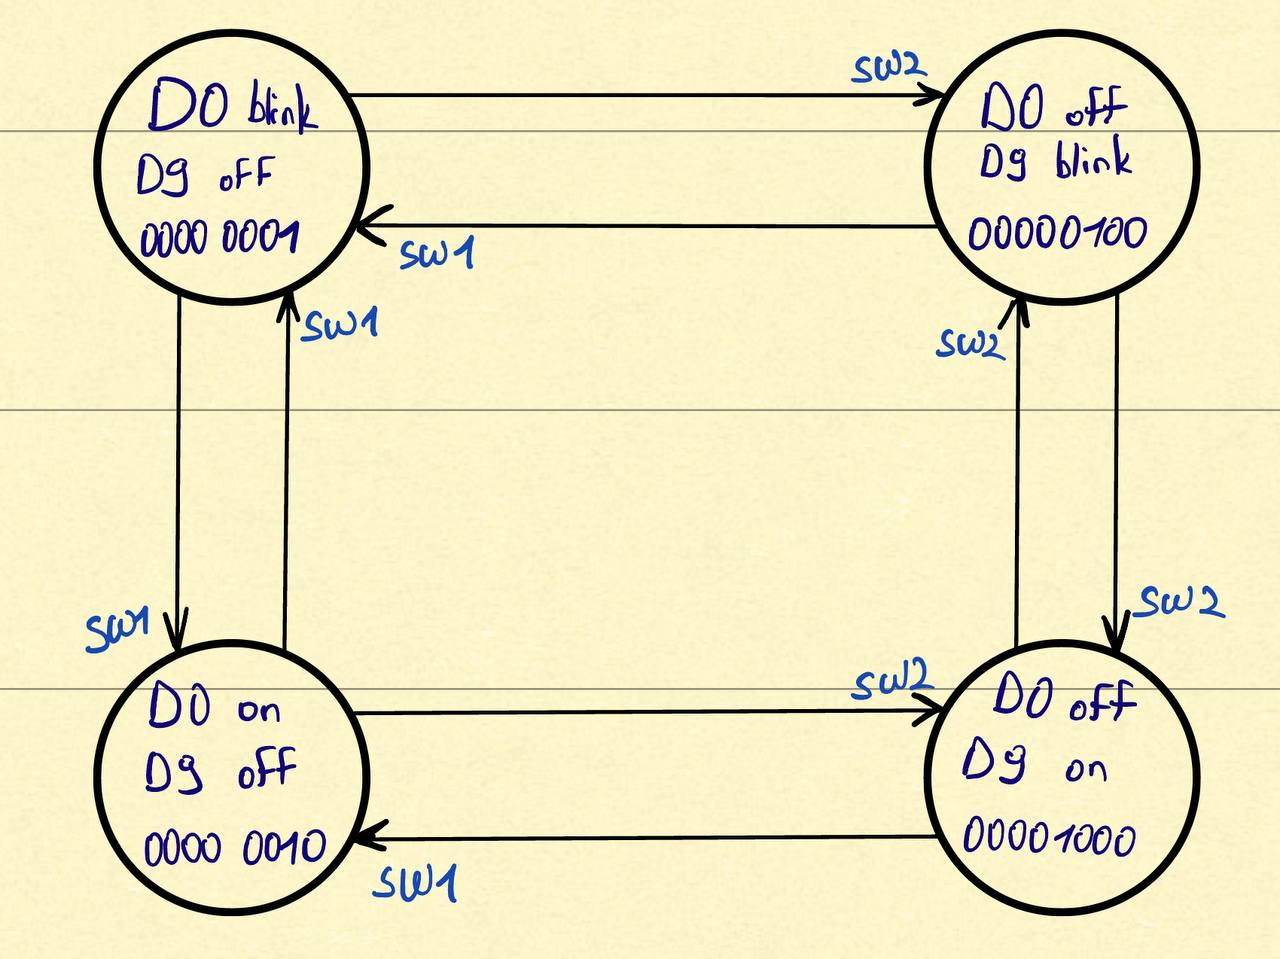 D0 blink
D9 off
0000 0001
SW2
D0 off
D9 blink
00000100
SW1
SW1
SW2
SW1
SW2
D0 on
D9 off
0000 0010
SW2
D0 off
D9 on
00001000
SW1